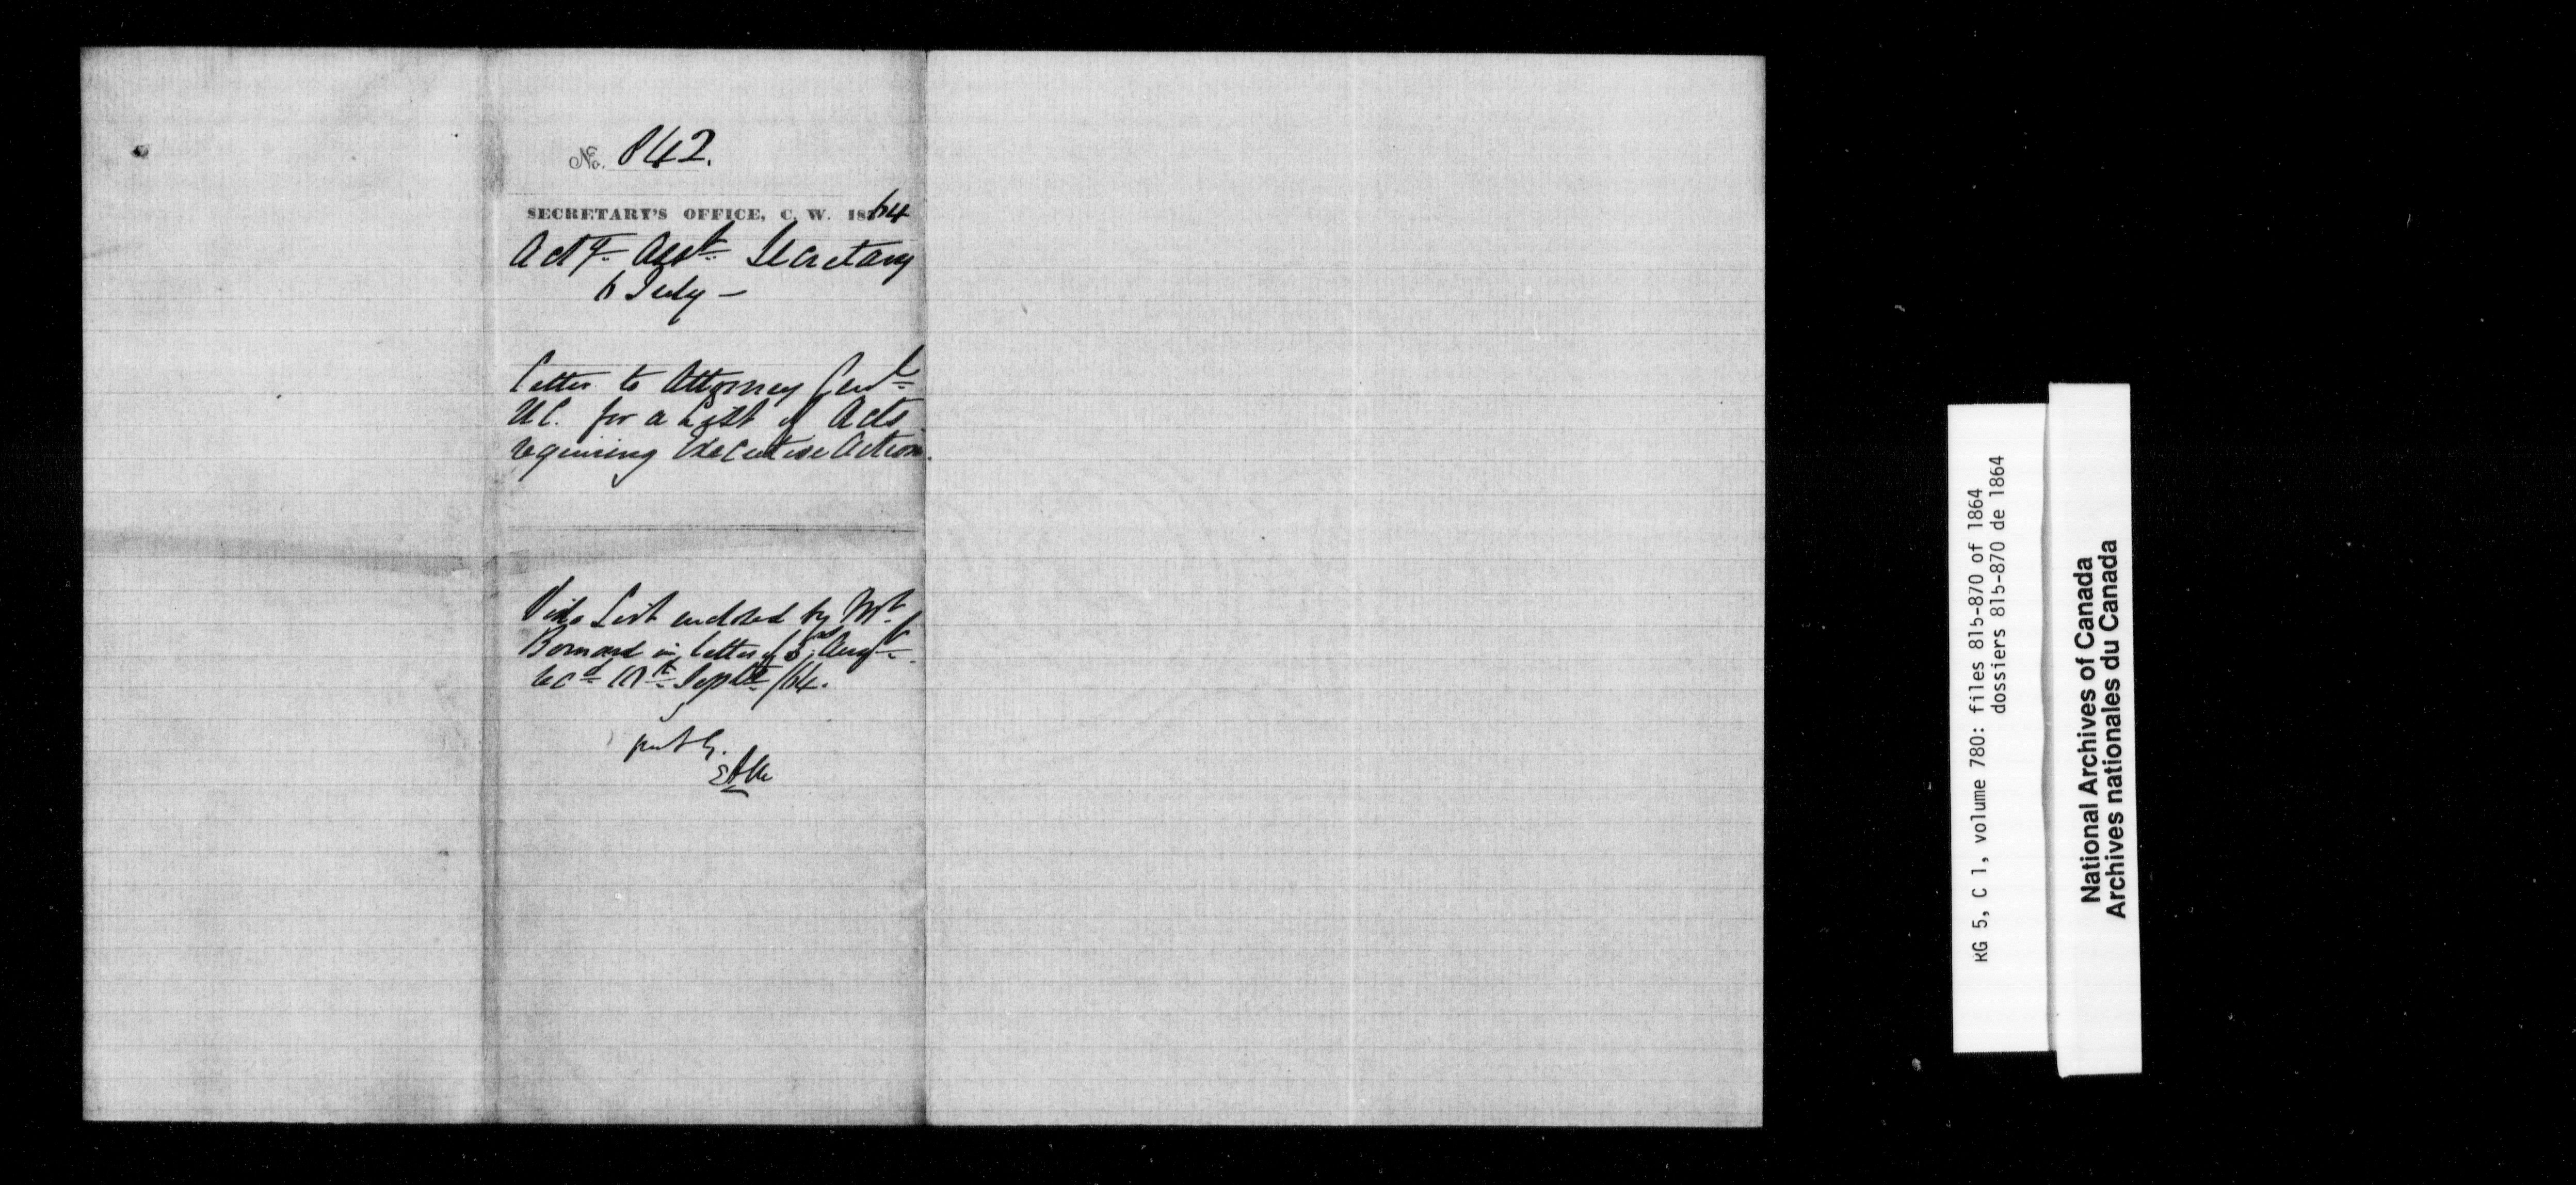 No. 842.
SECRETARY'S OFFICE, C. W. 1864
Actg. Asst. Secretary
6 July —
Letter to Attorney Genl.
U.C. for a List of Acts
requiring Executive Action.
Vide List enclosed by Mr.
Bernard in letter of Augt.
recd. Septr /64.
put by.
RG 5, C 1, volume 780: files 815-870 of 1864
dossiers 815-870 de 1864
National Archives of Canada
Archives nationales du Canada